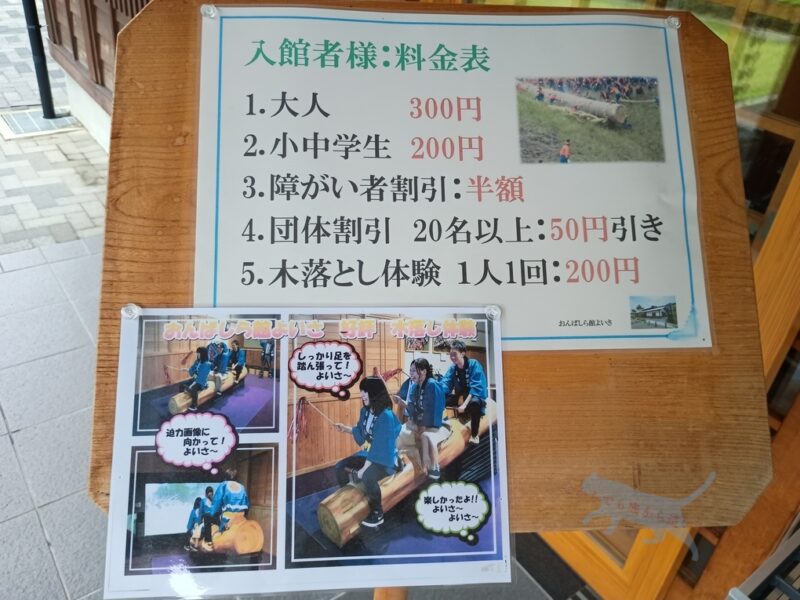 入館者様:料金表
1.大人 300円
2.小中学生 200円
3.障がい者割引:半額
4.団体割引 20名以上:50円引き
5.木落とし体験 1人1回:200円
おんばしら館よいさ
おんばしら館よいさ 好評 木落し体験
しっかり足を
踏ん張って!
よいさ～
迫力画像に
向かって!
よいさ～
楽しかったよ!!
よいさ～
よいさ～